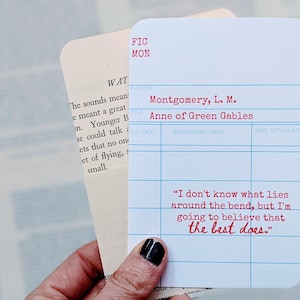 FIC
MON
AUTHOR
Montgomery, L. M.
Anne of Green Gables
DUE DATE BORROWER'S NAME DATE RETURNED
"I don't know what lies
around the bend, but I'm
going to believe that
the best does."
WAT
he sounds mean
e meant a great
n. Younger B
e could talk
ets that no one
et of flying,
small.